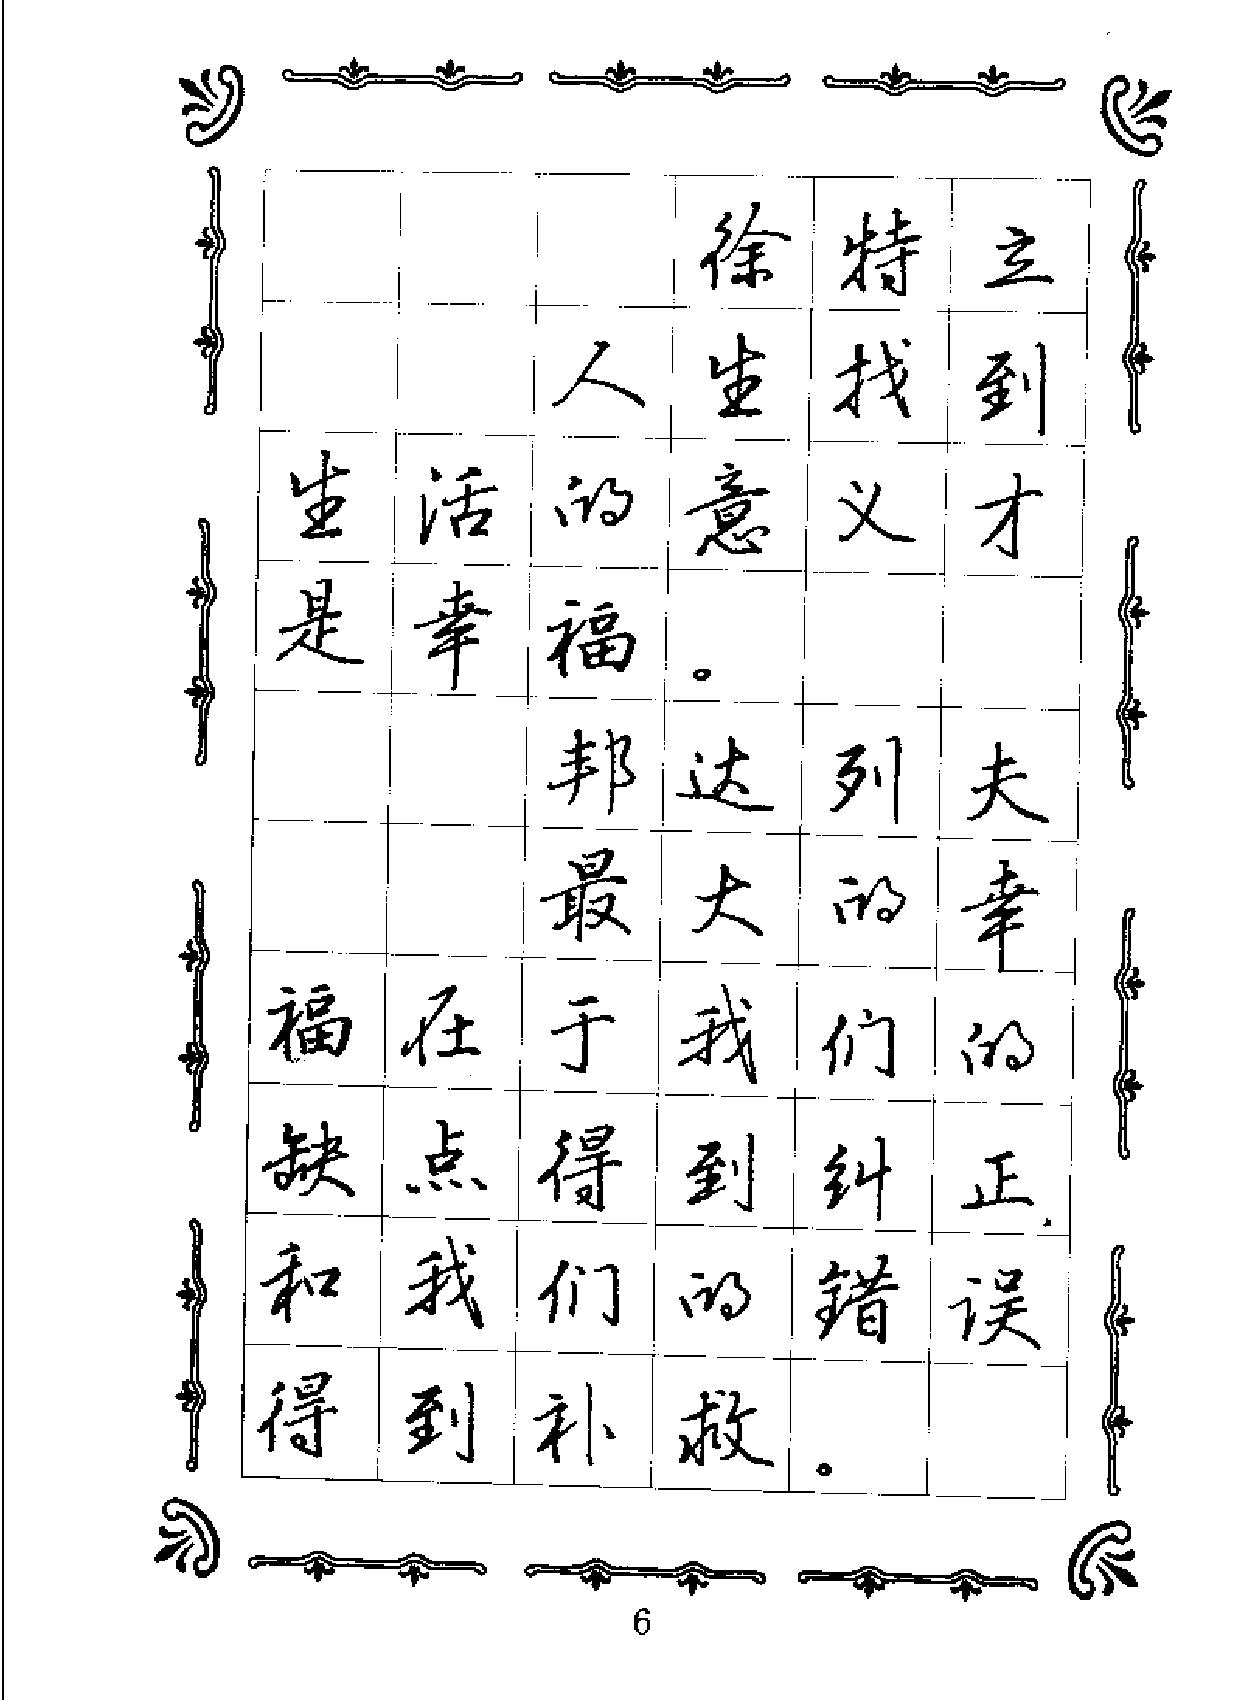 徐特立
人生找到
生活的意义才
是幸福。
邦达列夫
最大的幸
福在于我们的
缺点得到纠正
和我们的错误
得到补救。
6